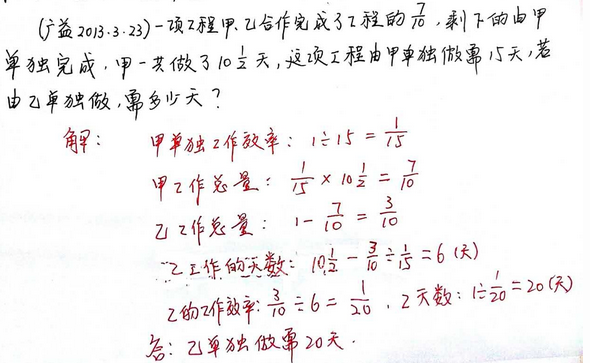 (广益2013.3.23)一项工程甲、乙合作完成了工程的7/10，剩下的由甲
单独完成，甲一共做了10 1/2天，这项工程由甲单独做需15天，若
由乙单独做，需多少天？
解： 甲单独工作效率：1÷15=1/15
甲工作总量：1/15×10 1/2=7/10
乙工作总量：1-7/10=3/10
乙工作的天数：10 1/2-3/10÷1/15=6(天)
乙的工作效率：3/10÷6=1/20，乙天数：1÷1/20=20(天)
答：乙单独做需20天.